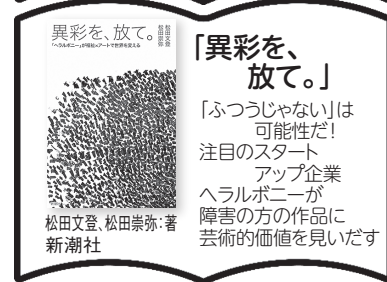 異彩を、放て。
「ヘラルボニー」が福祉×アートで世界を変える
松田文登
松田崇弥
松田文登、松田崇弥：著
新潮社
「異彩を、
放て。」
「ふつうじゃない」は
可能性だ！
注目のスタート
アップ企業
ヘラルボニーが
障害の方の作品に
芸術的価値を見いだす